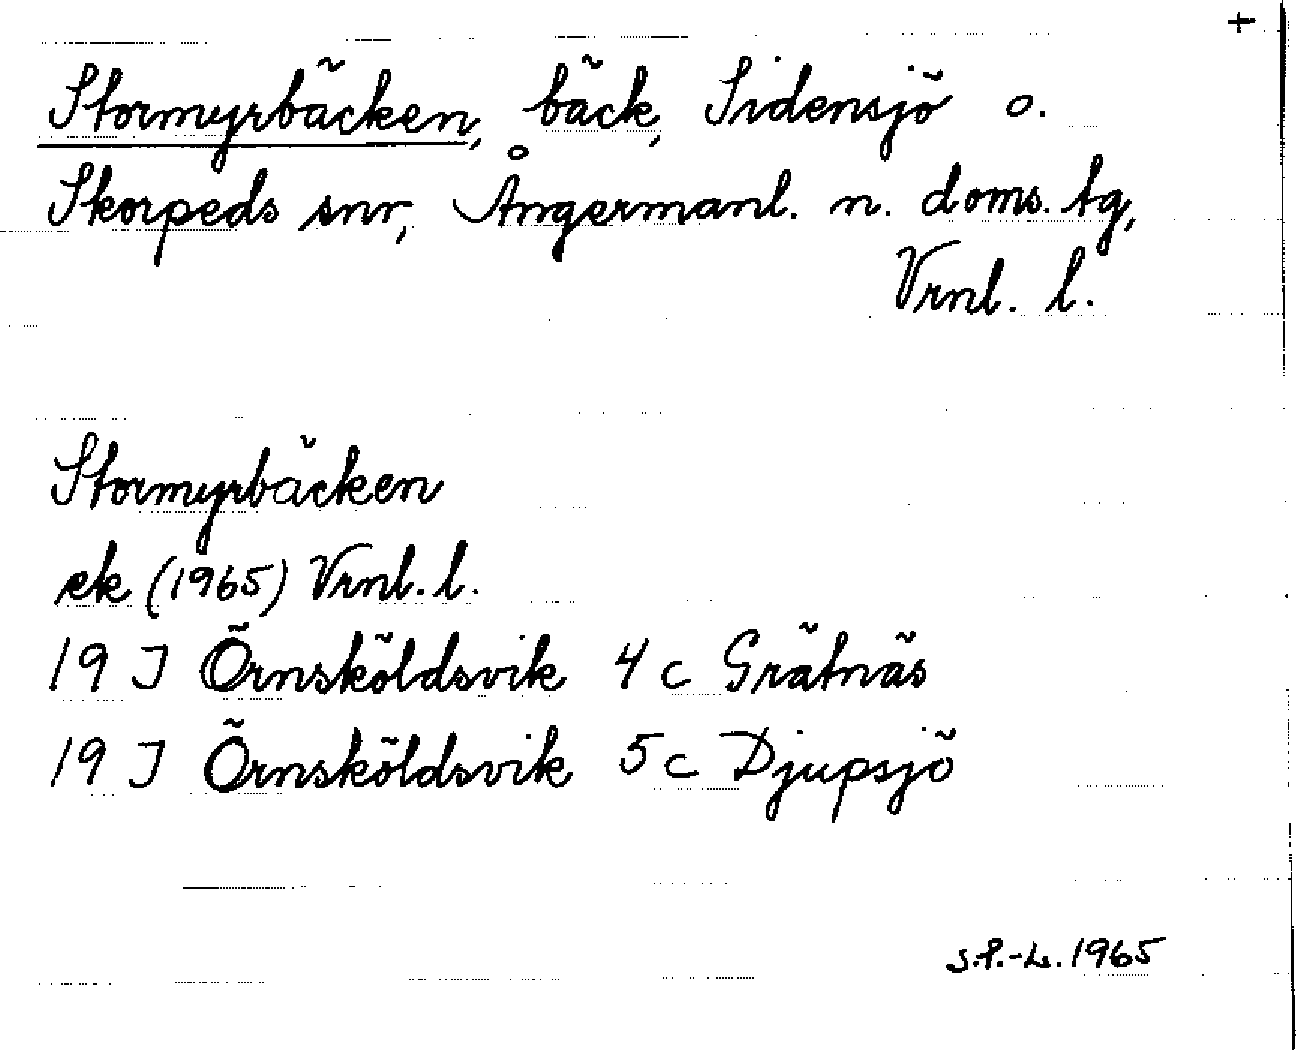 +
Stormyrbäcken, bäck, Sidensjö o.
Skorpeds snr, Ångermanl. n. doms. tg,
Vrnl. l.
Stormyrbäcken
ek (1965) Vrnl. l.
19 J Örnsköldsvik 4 c Grätnäs
19 J Örnsköldsvik 5 c Djupsjö
S.P.-L. 1965